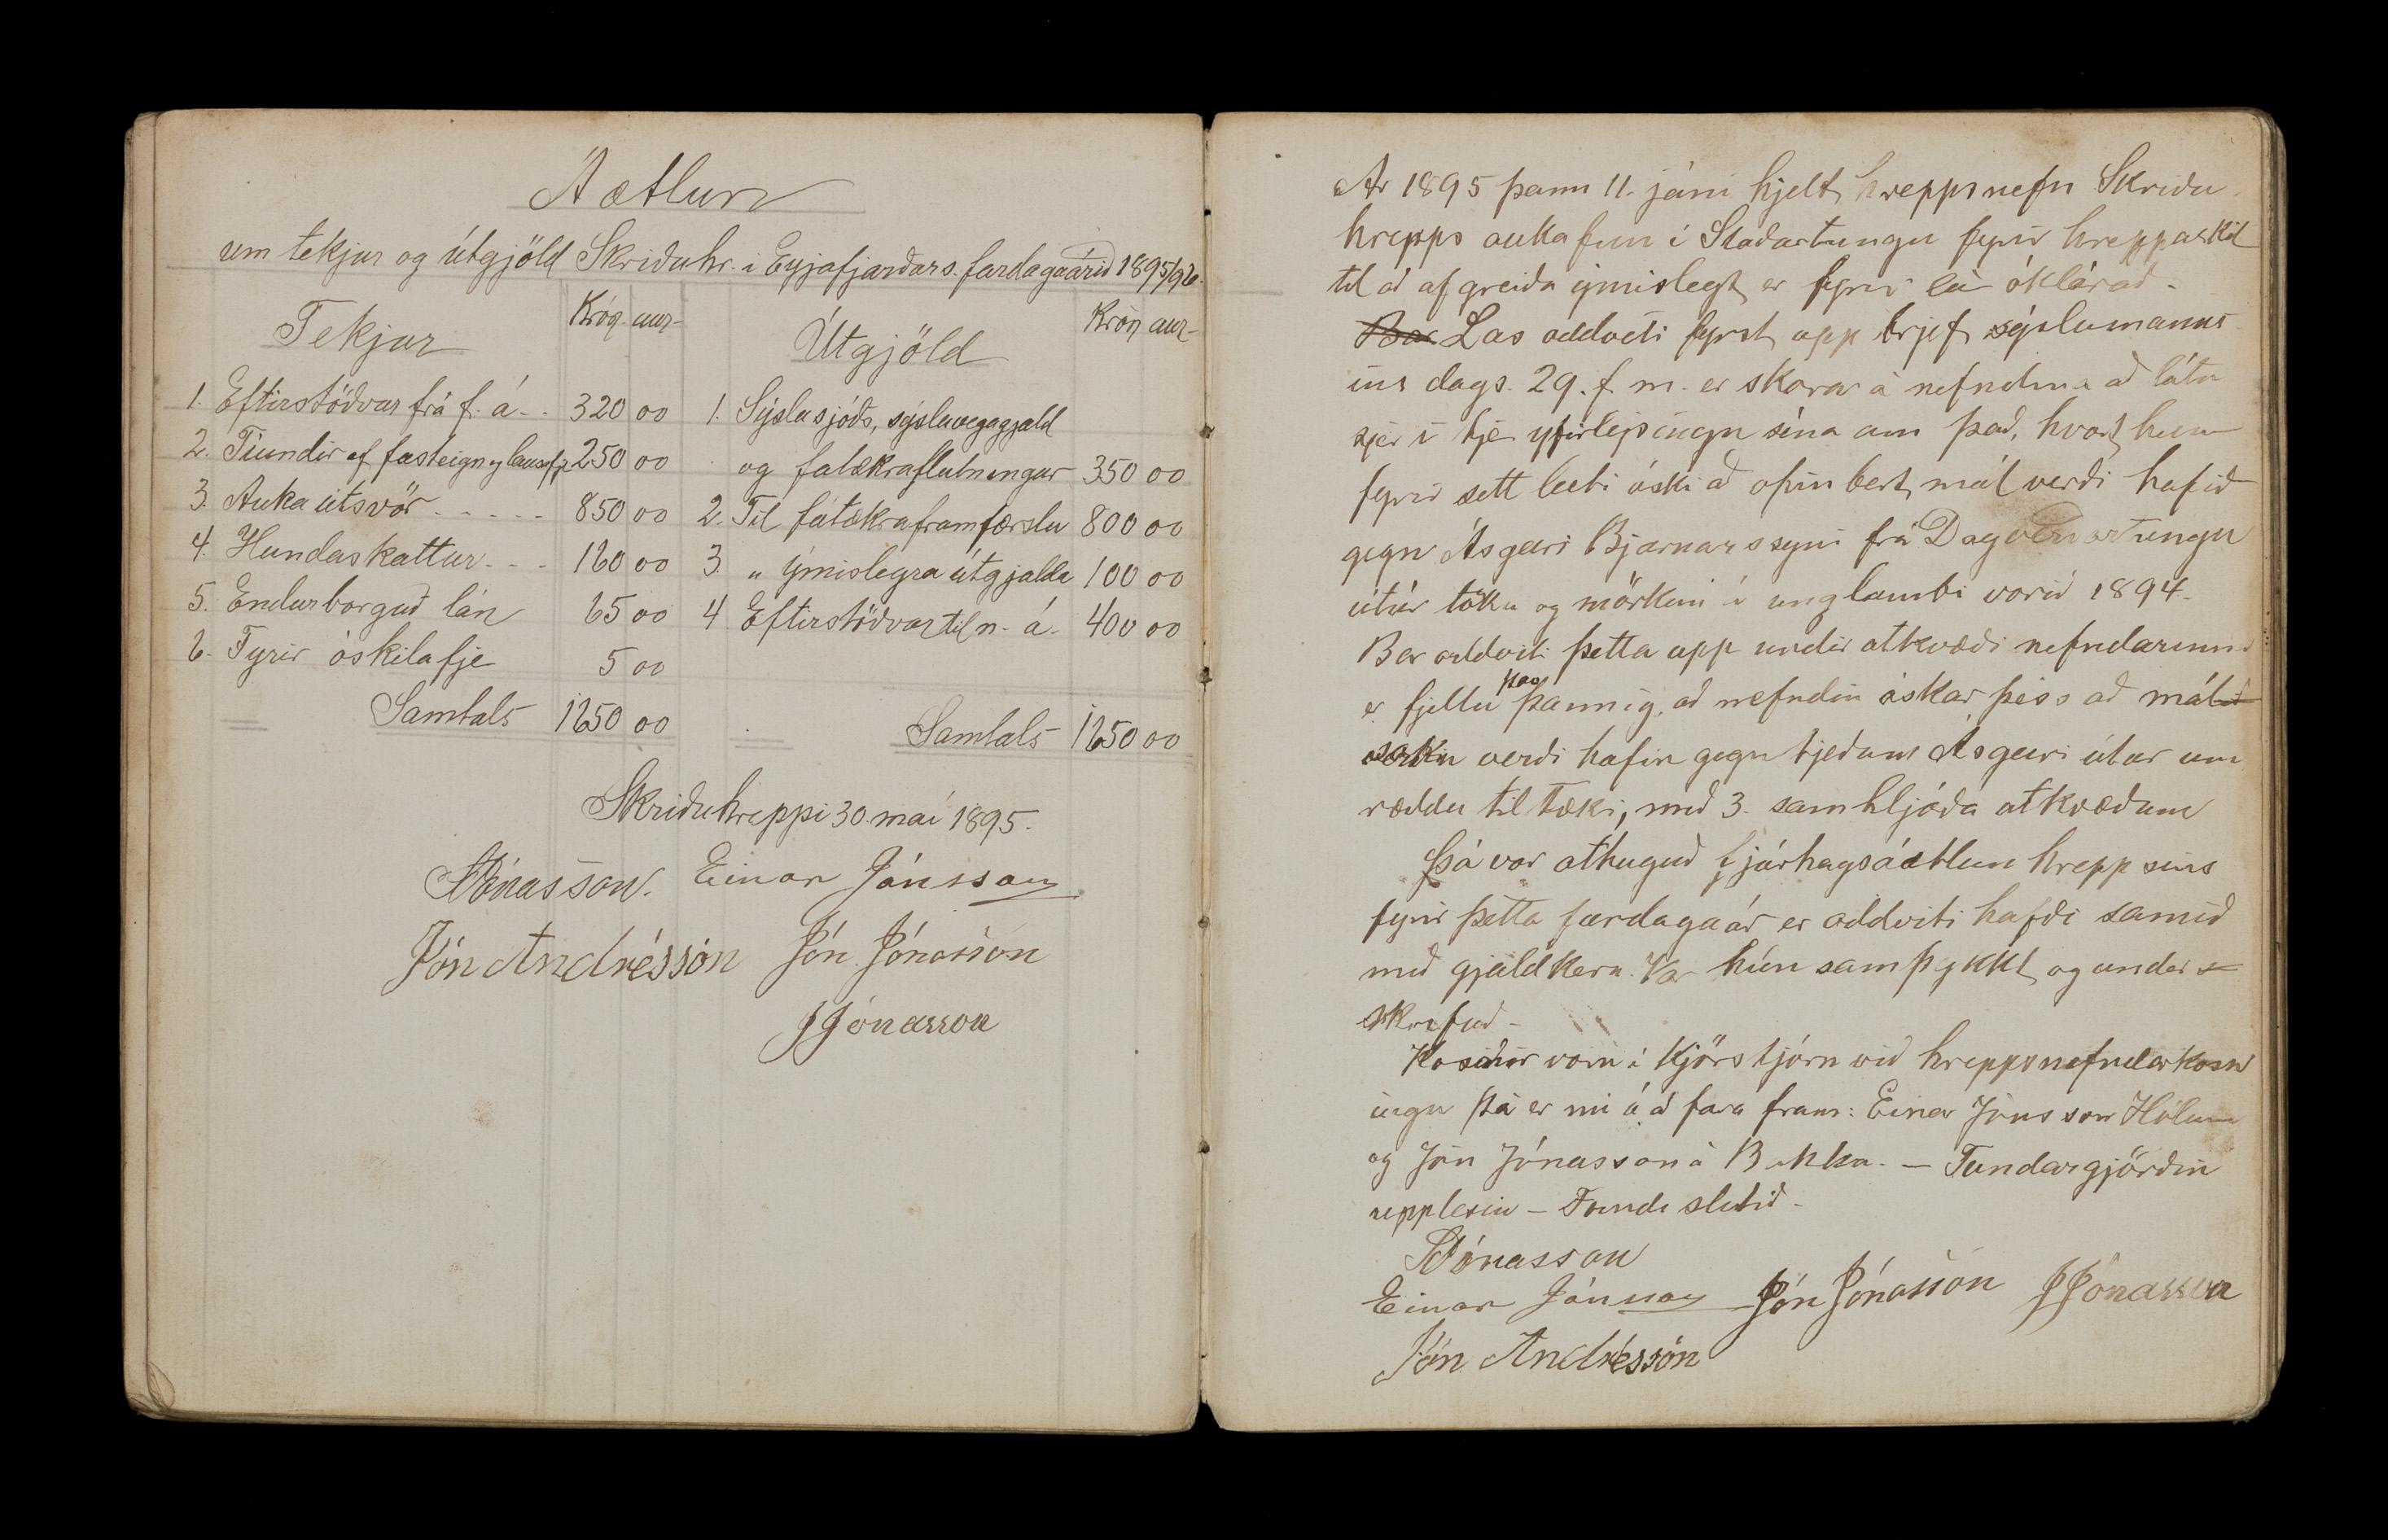 Áætlun
um tekjur og útgjöld Skriðuhr. í Eyjafjarðars. fardagaárið 1895/96.
Tekjur Krón. aur.
1. Eftirstöðvar frá f. á. . 320 00
2. Tíundir af fasteign og lausafje 250 00
3. Auka útsvör . . . . . 850 00
4. Hundaskattur . . . 160 00
5. Endurborguð lán 65 00
6. Fyrir óskilafje 5 00
Samtals 1650 00
Útgjöld Krón aur.
1. Sýslusjóðs, sýsluvegagjald
og fátækraflutningur 350 00
2. Til fátækraframfærslu 800 00
3. " ýmislegra útgjalda 100 00
4 Eftirstöðvar til n. á. 400 00
Samtals 1650 00
Skriðuhreppi 30. maí 1895.
Jónasson. Einar Jónsson
Jón Andrésson Jón Jónasson
JJónasson
Ár 1895 þann 11. júní hjelt hreppsnefn Skriðu
hrepps aukafun í Staðartungu fyrir hreppaskil
til að afgreiða ýmislegt er fyrir lá óklárað.
Bar Las oddviti fyrst upp brjef sýslumanns
ins dags. 29. f. m. er skorar á nefndina að láta
sjer í tje yfirlýsingu sína um það, hvort hun
fyrir sett leiti óski að opinbert mál verði hafið
gegn Ásgeiri Bjarnarssyni frá Dagverðartungu
útúr töku og mörkun á unglambi vorið 1894.
Bar oddviti þetta upp undir atkvæði nefndarinnar
er fjellu þau þannig, að nefndin óskar þess að málið
sókn verði hafin gegn tjeðum Ásgeiri útúr um
ræddu tiltæki, með 3. samhljóða atkvæðum
Þá var athuguð fjárhagsáætlun hreppsins
fyrir þetta fardagaár er oddviti hafði samið
með gjaldkera. Var hún samþykkt og undir
skrifuð.
Kosnir voru í kjörstjórn við hreppsnefndarkosn
ingu þá er nú á að fara fram: Einar Jónsson Hólum
og Jón Jónasson á Bakka. — Fundargjörðin
upplesin — Fundi slitið.
Jónasson
Einar Jónsson Jón Jónasson JJónasson
Jón Andrésson